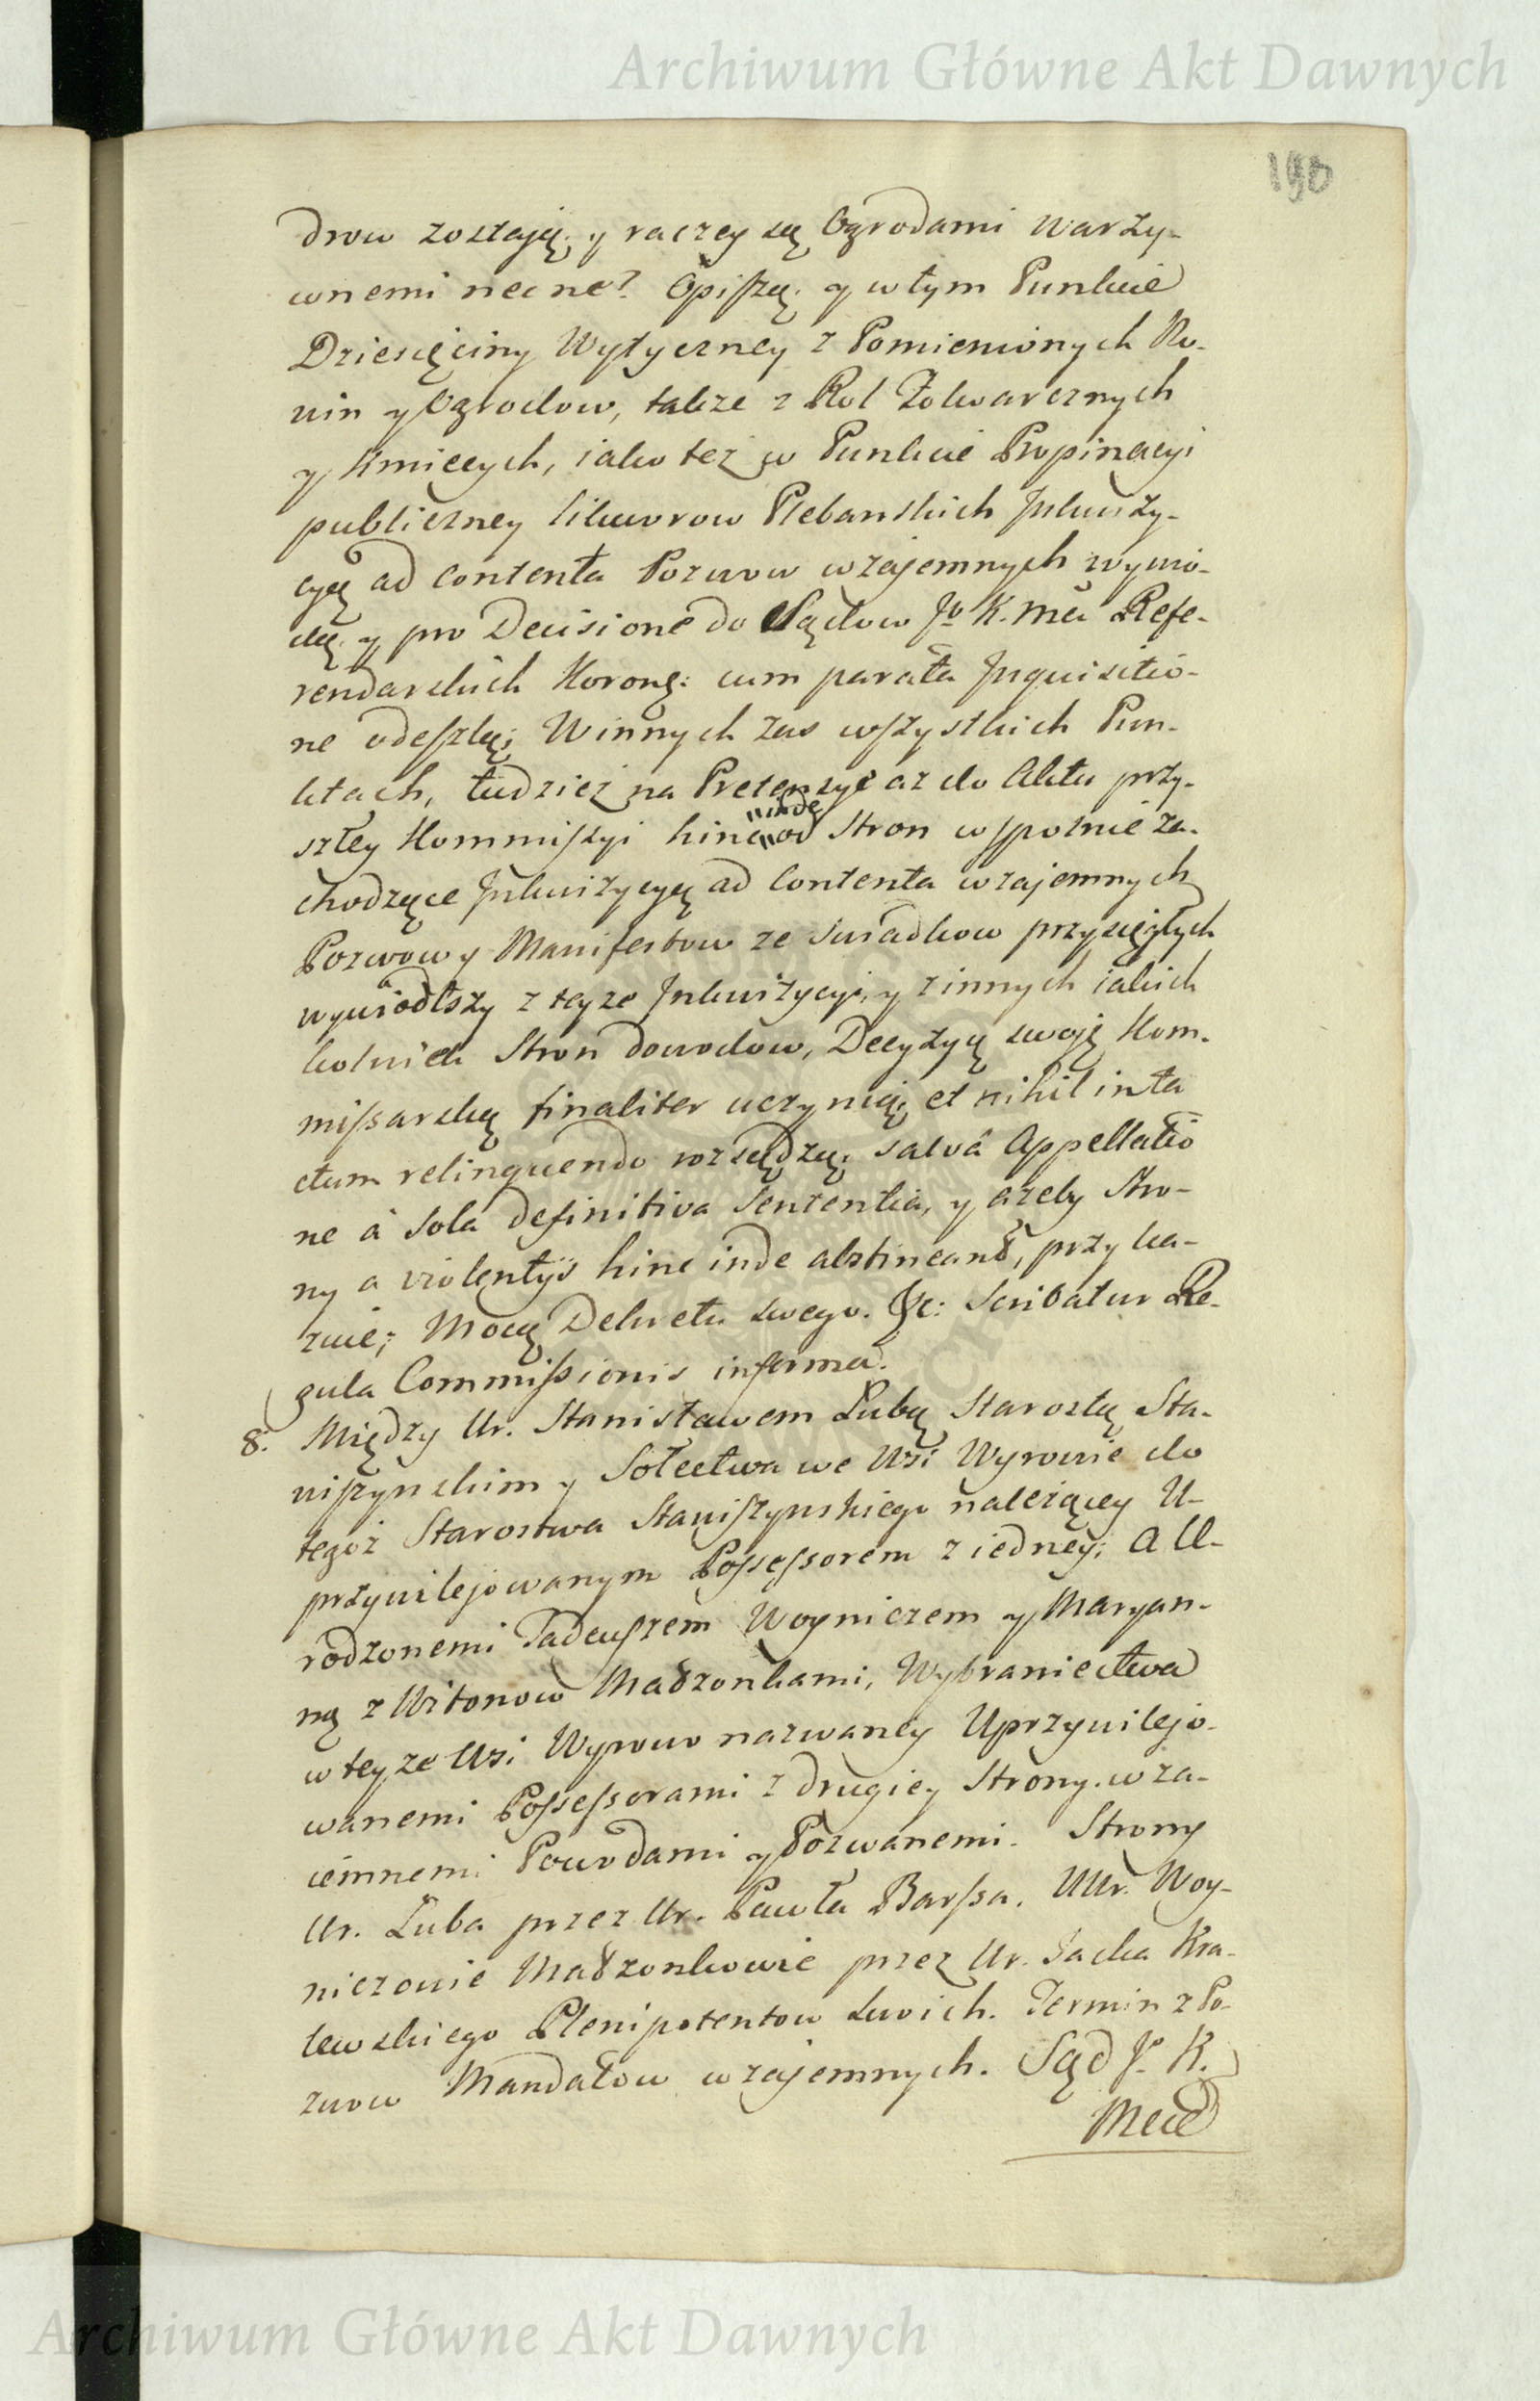 Archiwum Główne Akt Dawnych
190
drow zostaią, y raczey są Ogrodami Warzy-
wnemi nec ne? Opiszą, y w tym Punkcie
Dziesięciny Wytyczney z Pomienionych No-
win y Ogrodow, także z Rol Folwarcznych
y Kmiecych, iako też w Punkcie Propinacyi
publiczney likworow Plebanskich Inkwizy-
cyą ad contenta Pozwow wzajemnych wywio-
dą, y pro Decisione do Sądow Jo K. Mci Refe-
rendarskich Koronų: cum parata Inquisitio-
ne odeszlą; W innych zas wszystkich Pun-
ktach, tudzież na Pretensye az do Aktu przy-
szłey Kommiszyi hinc inde od Stron wspolnie za-
chodzące Inkwizycyą ad Contenta wzajemnych
Pozwow y Manifestow ze swiadkow przysięgłych
wywiodłszy z teyze Inkwizycyi, y z innych iakich
kolwiek Stron dowodow, Decyzyą swoję Kom-
missarską finaliter uczynią, et nihil inta
ctum relinquendo rozsądzą, salvâ Appellatio
ne â Sola definitiva Sententia, y azeby Stro-
ny a violentÿs hinc inde abstineant, przyka-
zuie; Mocą Dekretu swego. &c: Scribatur Re-
gula Commissionis in forma.
8. Między Ur. Stanisławem Lubą Starostą Sta-
niszynskim y Sołectwa we Wsi Wyrowie do
tegoż Starostwa Staniszynskiego nalezącey U-
przywilejowanym Possessorem z iedney; A U-
rodzonemi Tadeuszem Woyniczem y Maryan-
ną z Witonow Madżonkami, Wybraniectwa
w teyze Wsi Wyrowo nazwaney Uprzywilejo-
wanemi Possessorami z drugiey Strony. wza-
iemnemi Powodami y Pozwanemi. Strony
Ur. Luba przez Ur. Pawła Barssa. UUr. Woy-
niczowie Madżonkowie przez Ur. Jacka Kra-
lewskiego Plenipotentow swoich. Termin z Po-
zwow Mandatow wzajemnych. Sąd Jo K.
Mci
Archiwum Główne Akt Dawnych